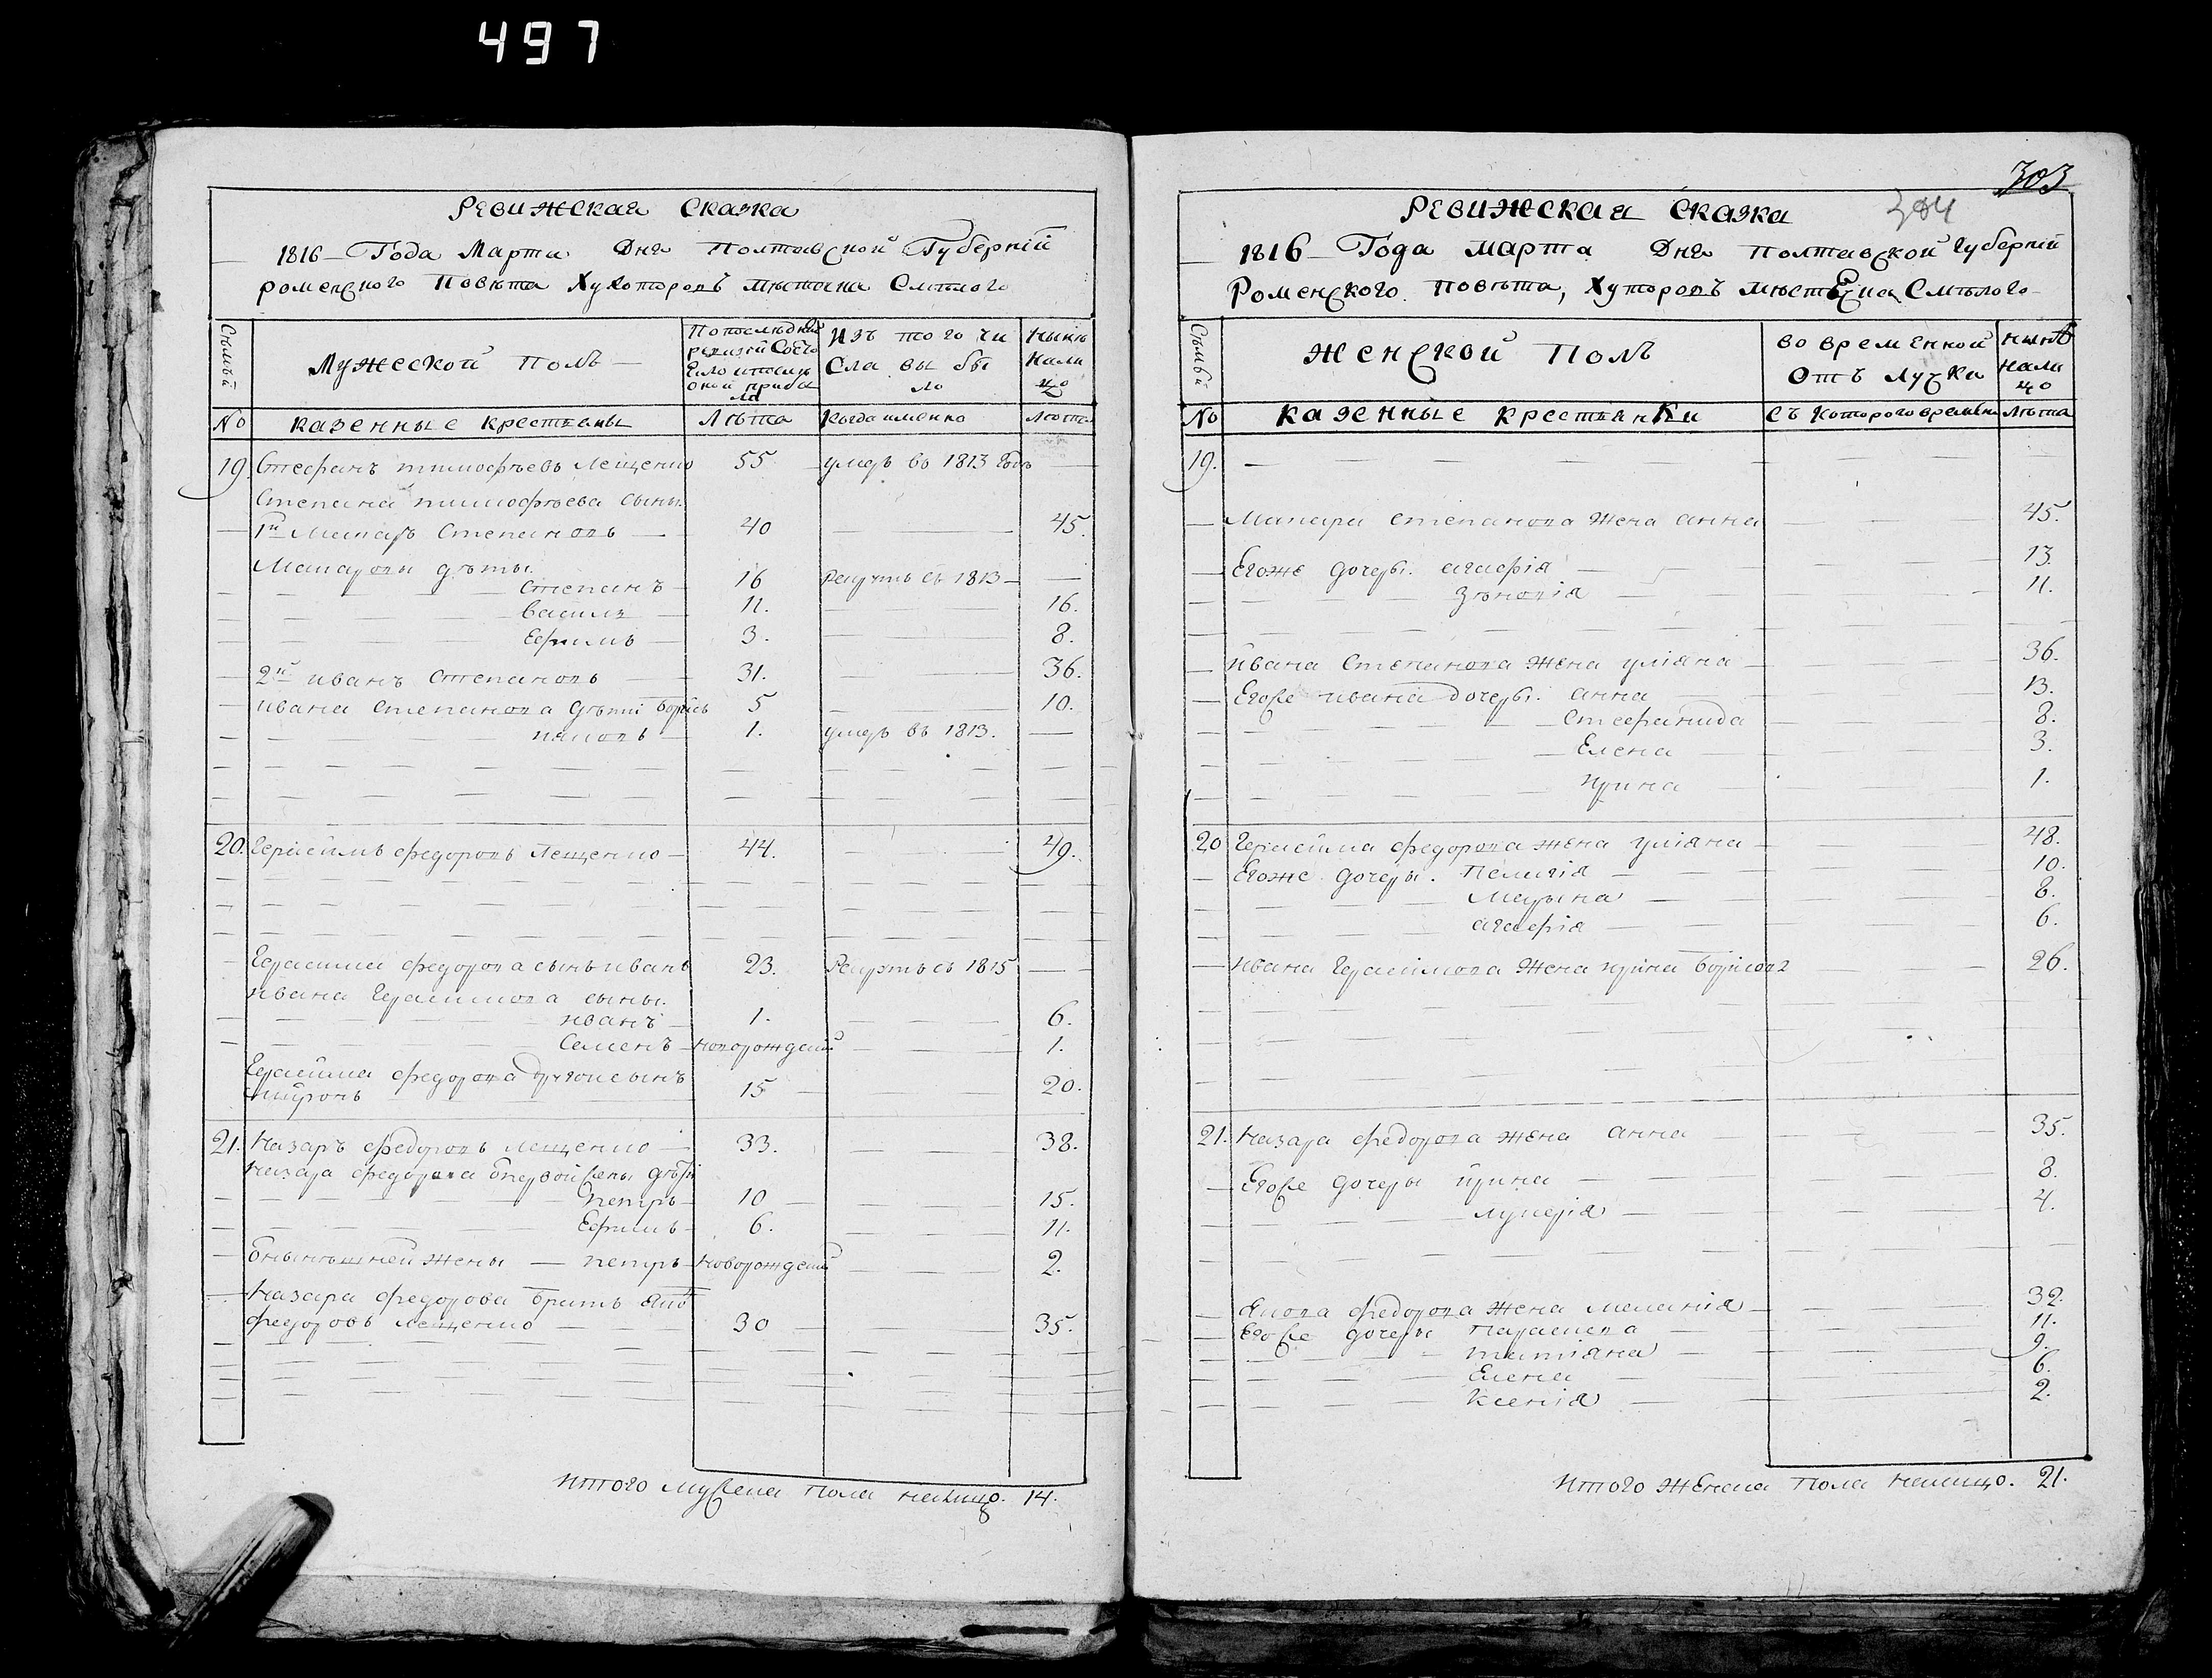 497
Ревижская Сказка
1816 Года Марта Дня Полтавской Губерніи
роменского Повѣта Хуторовъ мѣстечка Смѣлого
Сѣмьи
Мужеской Полъ
По последней ревизіи Состо
Изъ того чи
Сла вы бы
ло
Нынѣ
Нали
цо
No
казенные крестьяны
Лѣта
Когда именно
Лѣта
19. Стефанъ тимофѣевъ Лещенко 55 умеръ въ 1813 Годѣ
Степана тимофѣева сыны.
1й Макаръ Степановъ 40 45.
Макаровы дѣты.
Степанъ 16 Рекрутъ съ 1813
Василь 11. 16.
Ефимъ 3. 8.
2й иванъ Степановъ 31. 36.
ивана Степанова дѣти Борисъ 5 10.
яковъ 1. умеръ въ 1813.
20. Герасимъ федоровъ Лещенко 44. 49.
Герасима федорова сынъ иванъ 23. Рекрутъ съ 1815
ивана Герасимова сыны.
иванъ 1. 6.
Семенъ новорожденный 1.
Герасима федорова другой сынъ
миронъ 15 20.
21. Назаръ федоровъ лещенко 33. 38.
Назара федорова первой жены дѣти
петръ 10 15.
Ефимъ 6. 11.
нынѣшней жены петръ новорожденный 2.
Назара федорова братъ
федоровъ лещенко 30 35.
Итого мужска пола налицо. 14.
303
304
Ревижская сказка
1816 Года марта Дня Полтавской Губерніи
Роменского Повѣта, Хуторовъ мѣстечка Смѣлого
Сѣмьи
Женской Полъ
во временной
Отъ лучки
нынѣ
нали
цо
No
казенные крестьянки
Съ которого времени
Лѣта
19.
Макара степанова жена анна 45.
Егоже дочеры. агафія 13.
Зѣновія 11.
ивана Степанова жена уліяна 36.
Егоже ивана дочеры. анна 13.
Стефанида 8.
Елена 3.
ирина 1.
20 Герасима федорова жена уліяна 48.
Егоже дочеры. Пелагія 10.
Марына 8.
агафія 6.
ивана Герасимова жена ирина Борисова 26.
21. Назара федорова жена анна 35.
Егоже дочеры ирина 8.
лукерія 4.
Якова федорова жена меланія 32.
Егоже дочеры Параскева 11.
татіяна 9.
Елена 6.
Ксенія 2.
Итого женска пола налицо. 21.